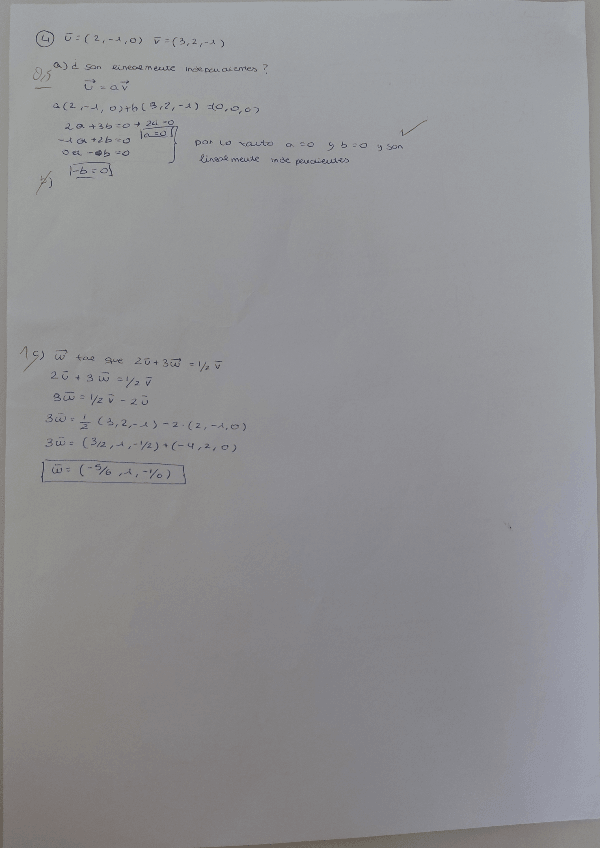 4 ū = (2, -1, 0) v̄ = (3, 2, -1)
0,5 a) ¿ son linealmente independientes?
u⃗ = a v⃗
a(2, -1, 0) + b(3, 2, -1) = (0, 0, 0)
2a + 3b = 0 → 2a = 0
-1a + 2b = 0 a = 0
0a - b = 0
-b = 0
por lo tanto a = 0 y b = 0 y son
linealmente independientes
1 c) w⃗ tal que 2ū + 3w⃗ = 1/2 v̄
2ū + 3w̄ = 1/2 v̄
3w̄ = 1/2 v̄ - 2ū
3w̄ = 1/2 (3, 2, -1) - 2·(2, -1, 0)
3w̄ = (3/2, 1, -1/2) + (-4, 2, 0)
w̄ = (-5/6, 1, -1/6)